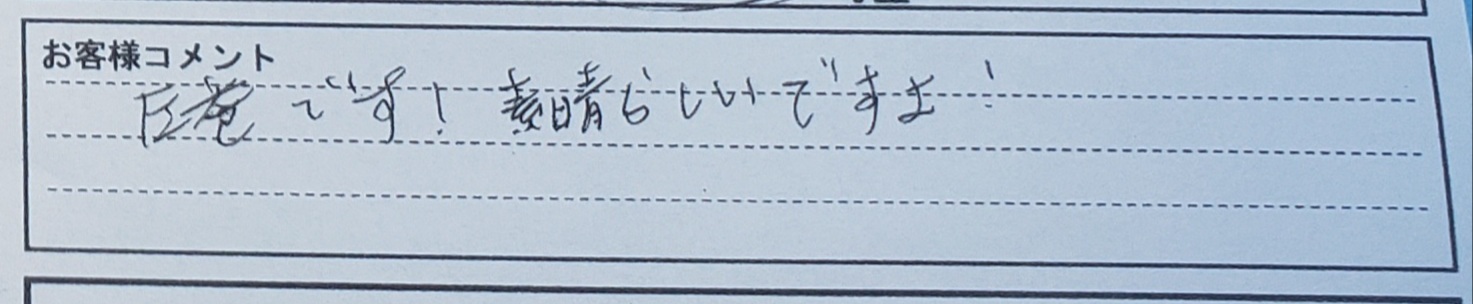 お客様コメント
圧巻です! 素晴らしいですよ!